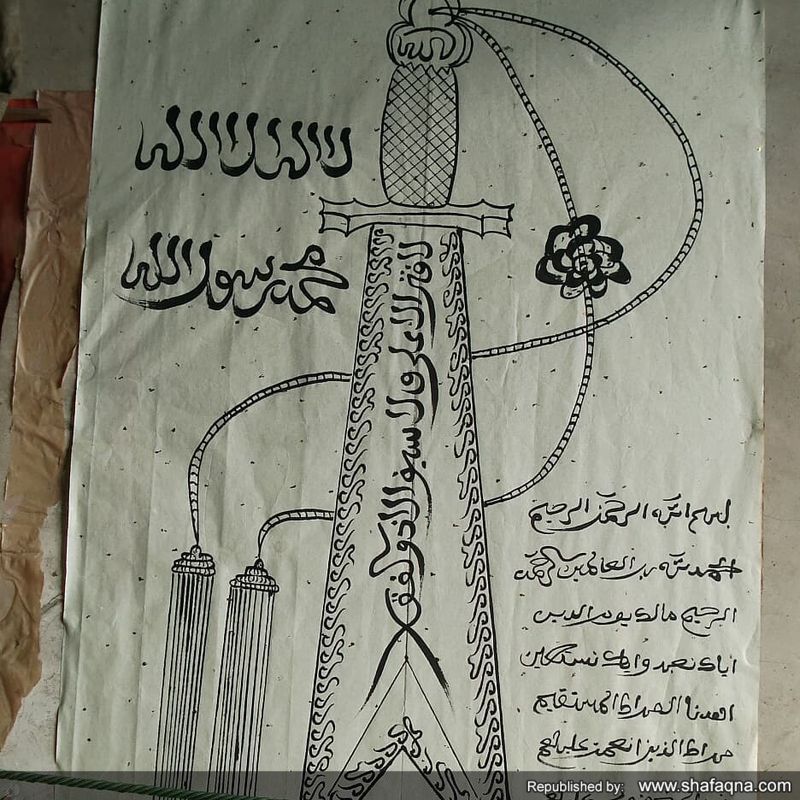 الله
لا اله الا الله
محمد رسول الله
لا فتى الا علي لا سيف الا ذو الفقار
بسم الله الرحمن الرحيم
الحمد لله رب العالمين الرحمن
الرحيم مالك يوم الدين
اياك نعبد واياك نستعين
اهدنا الصراط المستقيم
صراط الذين انعمت عليهم
Republished by: www.shafaqna.com